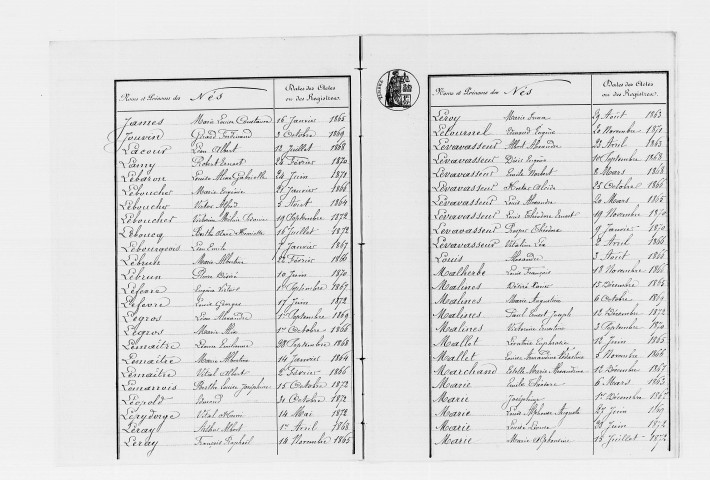 Noms et Prénoms des Nés
Dates des Actes
ou des Registres.
James Marie Louise Constance 16 Janvier 1865
Jouvin Gérard Ferdinand 3 Octobre 1869
Lacour Léon Albert 12 Juillet 1868
Lamy Robert Ernest 24 Février 1870
Lebaron Louise Gabrielle 24 Juin 1871
Leboucher Marie Eugénie 21 Janvier 1866
Leboucher Victor Alfred 5 Août 1864
Leboucher Victorine 19 Septembre 1872
Leboucq Berthe Henriette 16 Juillet 1872
Lebourgeois Léon Emile 7 Janvier 1867
Lebrun Marie Albertine 22 Février 1866
Lebrun Pierre Désiré 10 Juin 1870
Lefevre Eugène Victor 1er Septembre 1867
Lefevre Louis Georges 17 Juin 1872
Legros Léon Alexandre 1er Septembre 1869
Legros Marie 1er Octobre 1866
Lemaître Emilienne 28 Septembre 1868
Lemaître Marie Albertine 14 Janvier 1864
Lemaître Vital Albert 2 Février 1866
Lemarois Berthe Louise Joséphine 15 Octobre 1872
Léopold Edmond 30 Octobre 1872
Vital Henri 14 Mai 1872
Leray Arthur Albert 1er Avril 1868
Leray François Raphaël 14 Novembre 1865
Noms et Prénoms des Nés
Dates des Actes
ou des Registres.
Leroy Marie 29 Août 1863
Letournel Edmond Eugène 20 Novembre 1871
Levavasseur Albert Alexandre 23 Avril 1863
Levavasseur Désiré Eugène 10 Septembre 1868
Levavasseur Emile Norbert 8 Mars 1868
Levavasseur 25 Octobre 1866
Levavasseur Louis Alexandre 20 Mars 1865
Levavasseur Louis Théodore Ernest 19 Novembre 1870
Levavasseur 9 Janvier 1870
Levavasseur 2 Avril 1866
Louis Alexandre 3 Août 1866
Malherbe Louis François 18 Novembre 1866
Malines Désiré 15 Décembre 1868
Malines Marie Augustine 6 Octobre 1869
Malines Paul Ernest Joseph 12 Décembre 1872
Malines Victorine 3 Septembre 1870
Mallet Euphrasie 12 Juin 1865
Mallet Louise Amandine 5 Novembre 1866
Marchand Estelle Maria Alexandrine 12 Décembre 1867
Marie 6 Mars 1863
Marie Joséphine 1er Décembre 1862
Marie Louis Alphonse Auguste 27 Juin 1869
Marie Louise 28 Juin 1872
Marie Marie Alphonsine 15 Juillet 1872